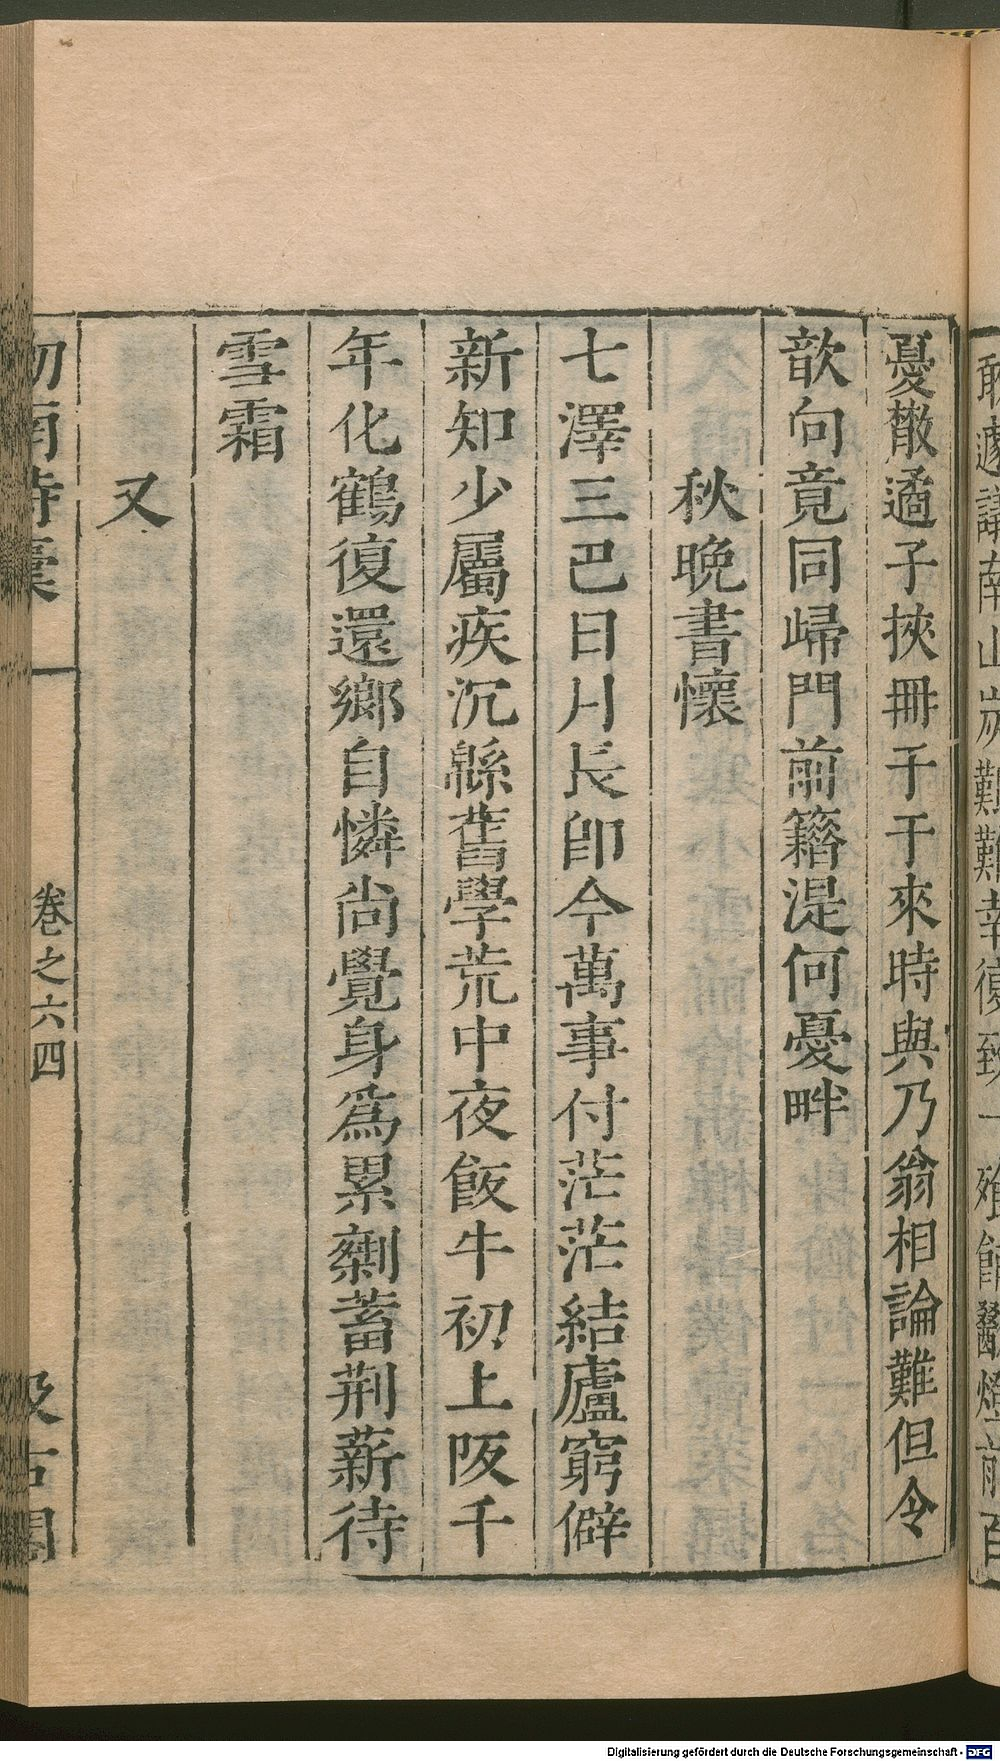 憂散適子挾冊于于來時與乃翁相論難但令
歆向竟同歸門前籍湜何憂畔
秋晚書懷
七澤三巴日月長卽今萬事付茫茫結廬窮僻
新知少屬疾沉緜舊學荒中夜飯牛初上阪千
年化鶴復還鄉自憐尚覺身爲累剩蓄荆薪待
雪霜
又
劒南詩稾
卷之六四
汲古閣
Digitalisierung gefördert durch die Deutsche Forschungsgemeinschaft - DFG